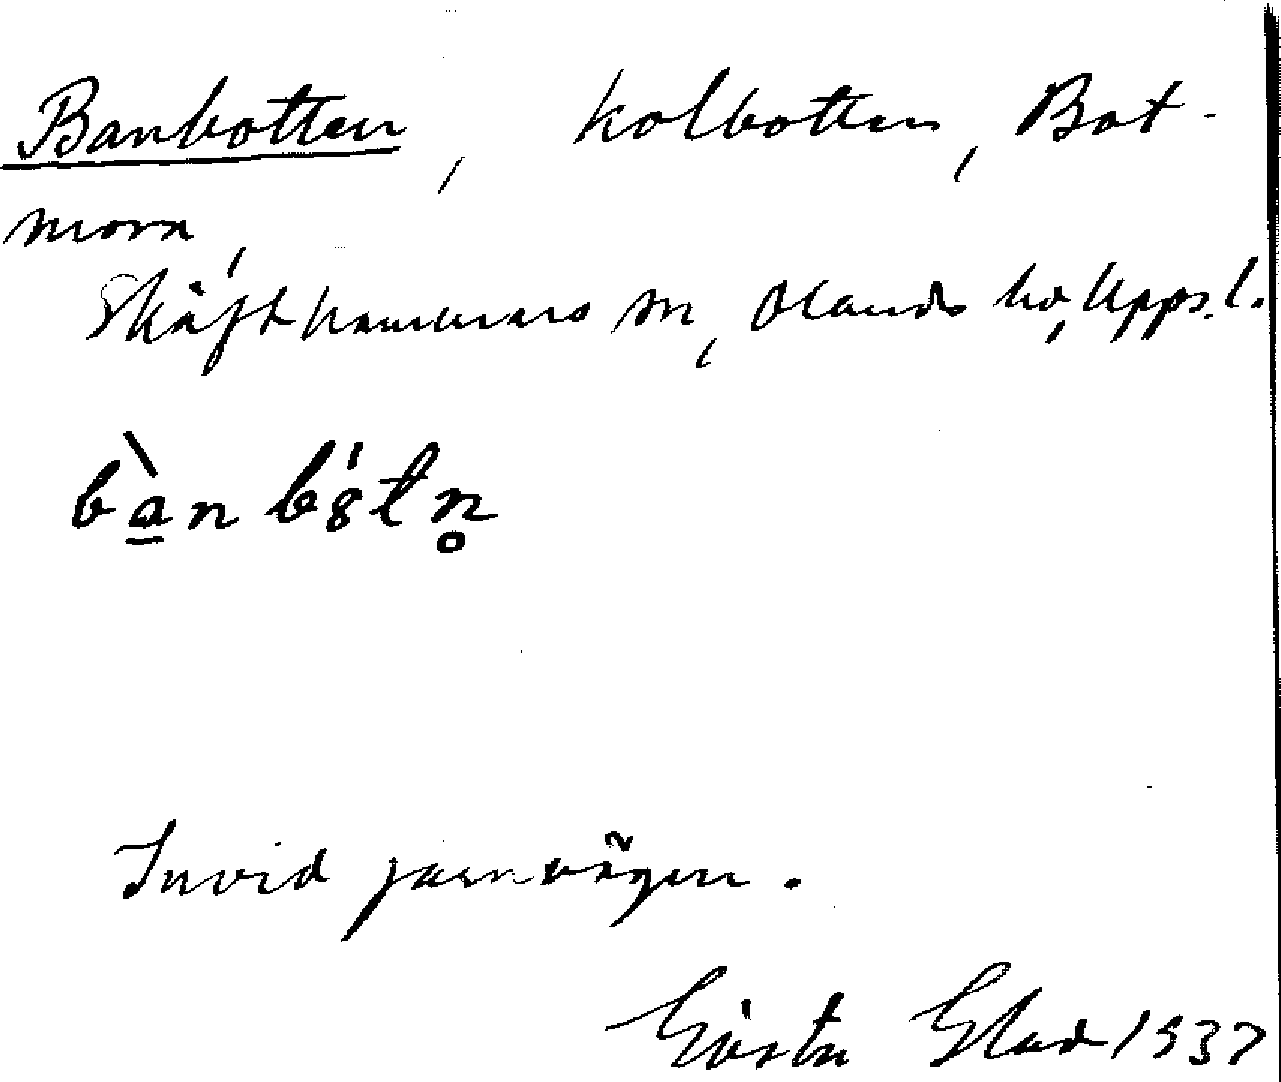 Banbotten, kolbotten, Bot-
mora,
Skäfthammars sn, Olands hd, Upps. l.
bànbòtn̥
Invid järnvägen.
Gösta Glad 1937